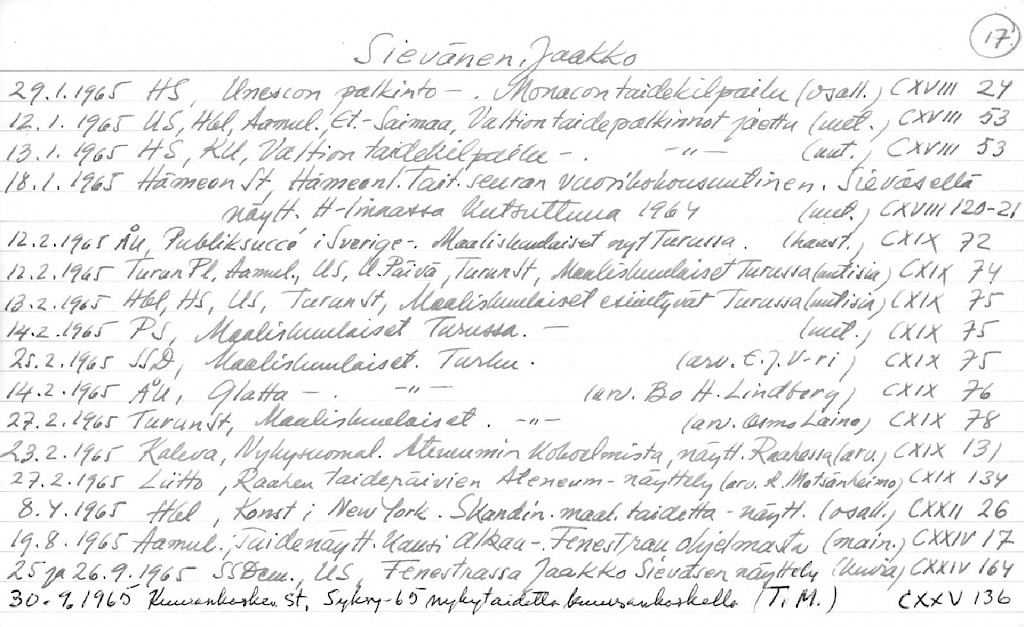 17.
Sievänen, Jaakko
29.1.1965 HS, Unescon palkinto - . Monacon taidekilpailu (osall.) CXVIII 24
12.1.1965 US, Hbl, Aamul., Et.-Saimaa, Valtion taidepalkinnot jaettu (uut.) CXVIII 53
13.1.1965 HS, KU, Valtion taidekilpailu - . -"- (uut.) CXVIII 53
18.1.1965 Hämeen St, Hämeenl. Tait. seuran vuosikokousuutinen. Sieväsellä
näytt. H-linnassa kutsuttuna 1964 (uut.) CXVIII 120-21
12.2.1965 ÅU, Publiksuccé i Sverige -. Maaliskuulaiset nyt Turussa. (haast.) CXIX 72
12.2.1965 Turun Pl, Aamul., US, U.Päivä, Turun St, Maaliskuulaiset Turussa (uutisia) CXIX 74
13.2.1965 Hbl, HS, US, Turun St, Maaliskuulaiset esiintyvät Turussa (uutisia) CXIX 75
14.2.1965 PS, Maaliskuulaiset Turussa. - (uut.) CXIX 75
25.2.1965 SSD, Maaliskuulaiset. Turku. (arv. E.J.V-ri) CXIX 75
14.2.1965 ÅU, Glatta - . -"- (arv. Bo H. Lindberg) CXIX 76
27.2.1965 Turun St, Maaliskuulaiset . -"- (arv. Osmo Laine) CXIX 78
23.2.1965 Kaleva, Nykysuomal. Ateneumin kokoelmista, näytt. Raahessa (arv.) CXIX 131
27.2.1965 Liitto, Raahen taidepäivien Ateneum-näyttely (arv. R. Metsänheimo) CXIX 134
8.4.1965 Hbl, Konst i New York. Skandin. maal. taidetta-näytt. (osall.) CXXII 26
19.8.1965 Aamul., Taidenäytt. kausi alkaa -. Fenestran ohjelmasta (main.) CXXIV 17
25 ja 26.9.1965 SSDem., US, Fenestrassa Jaakko Sieväsen näyttely (kuvia) CXXIV 164
30.9.1965 Kuusankosken St, Syksy-65 nykytaidetta Kuusankoskella (T.M.) CXXV 136